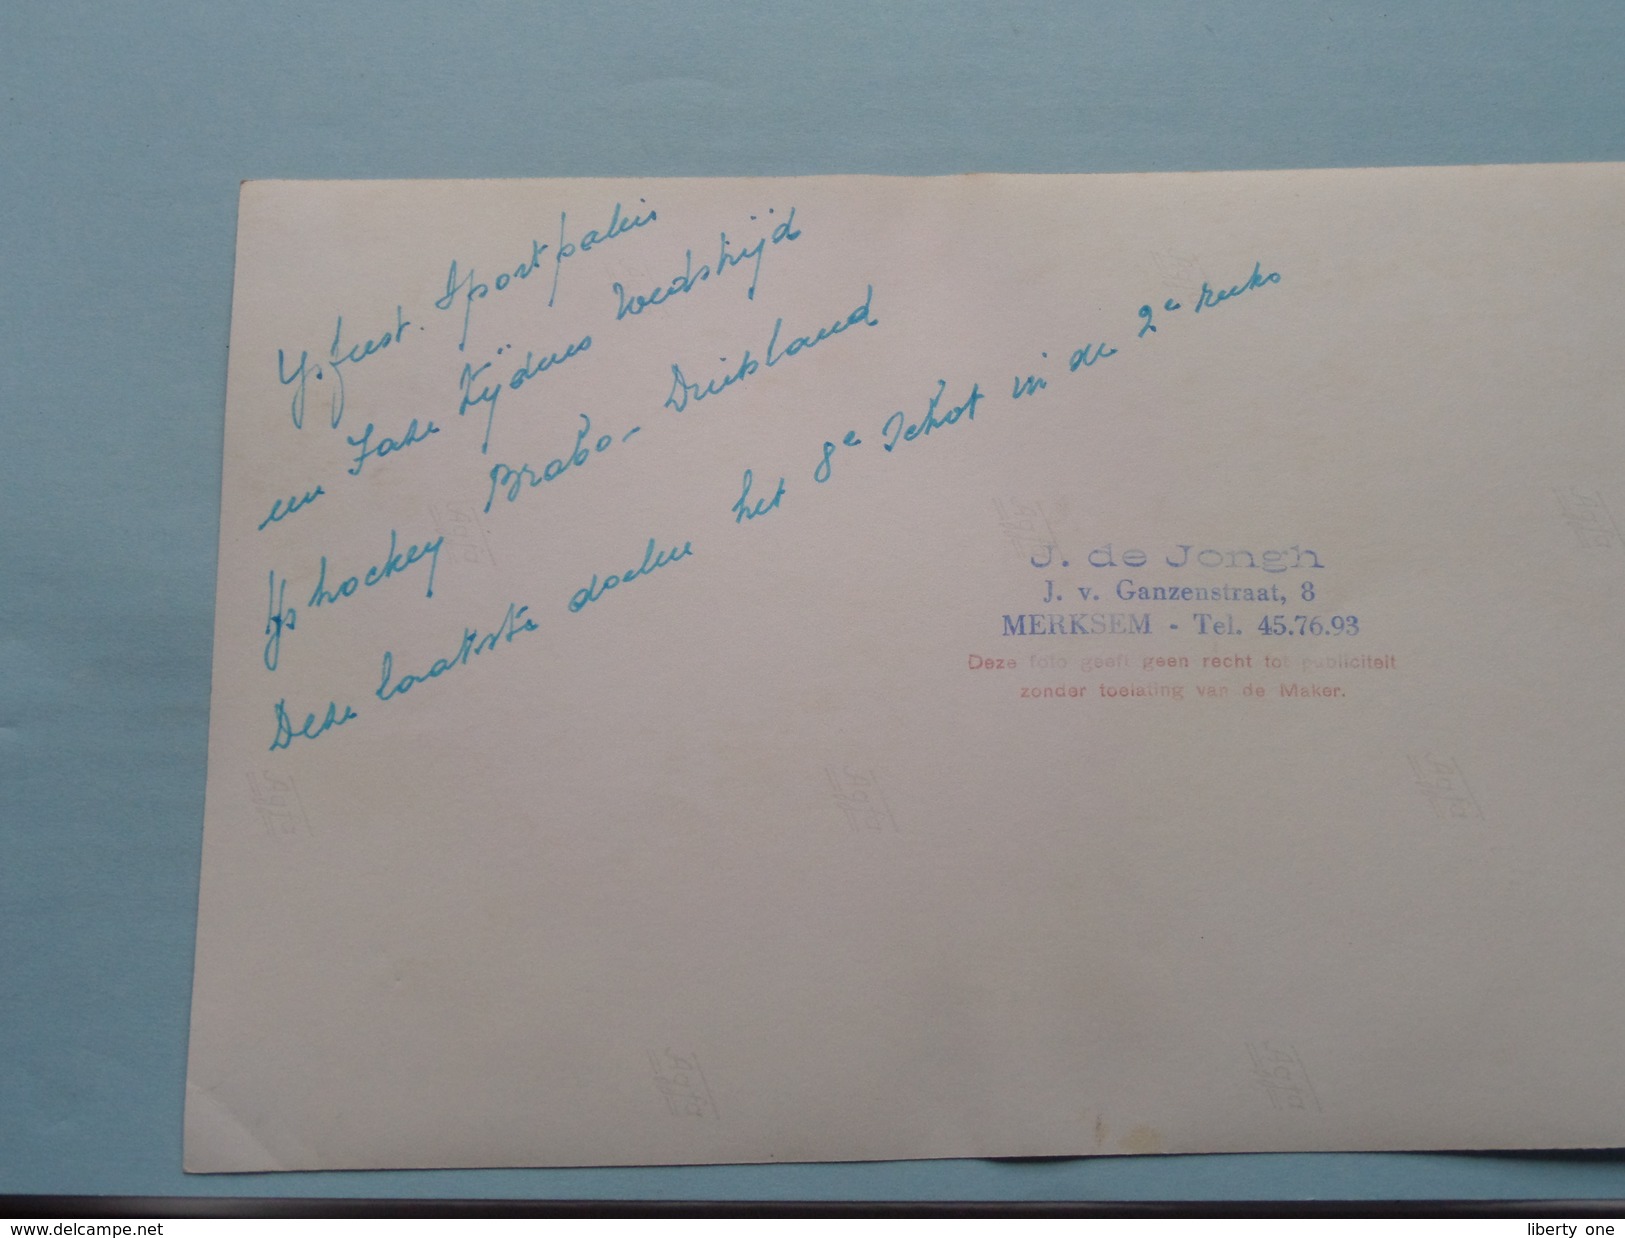 Ysfeest. Sportpaleis
een Fase tijdens Wedstrijd
Ijshockey Brabo - Duitsland
Deze laatste doelen het 8e Schot in de 2e reeks
J. de Jongh
J. v. Ganzenstraat, 8
MERKSEM - Tel. 45.76.93
Deze foto geeft geen recht tot publiciteit
zonder toelating van de Maker.
www.delcampe.net
liberty one